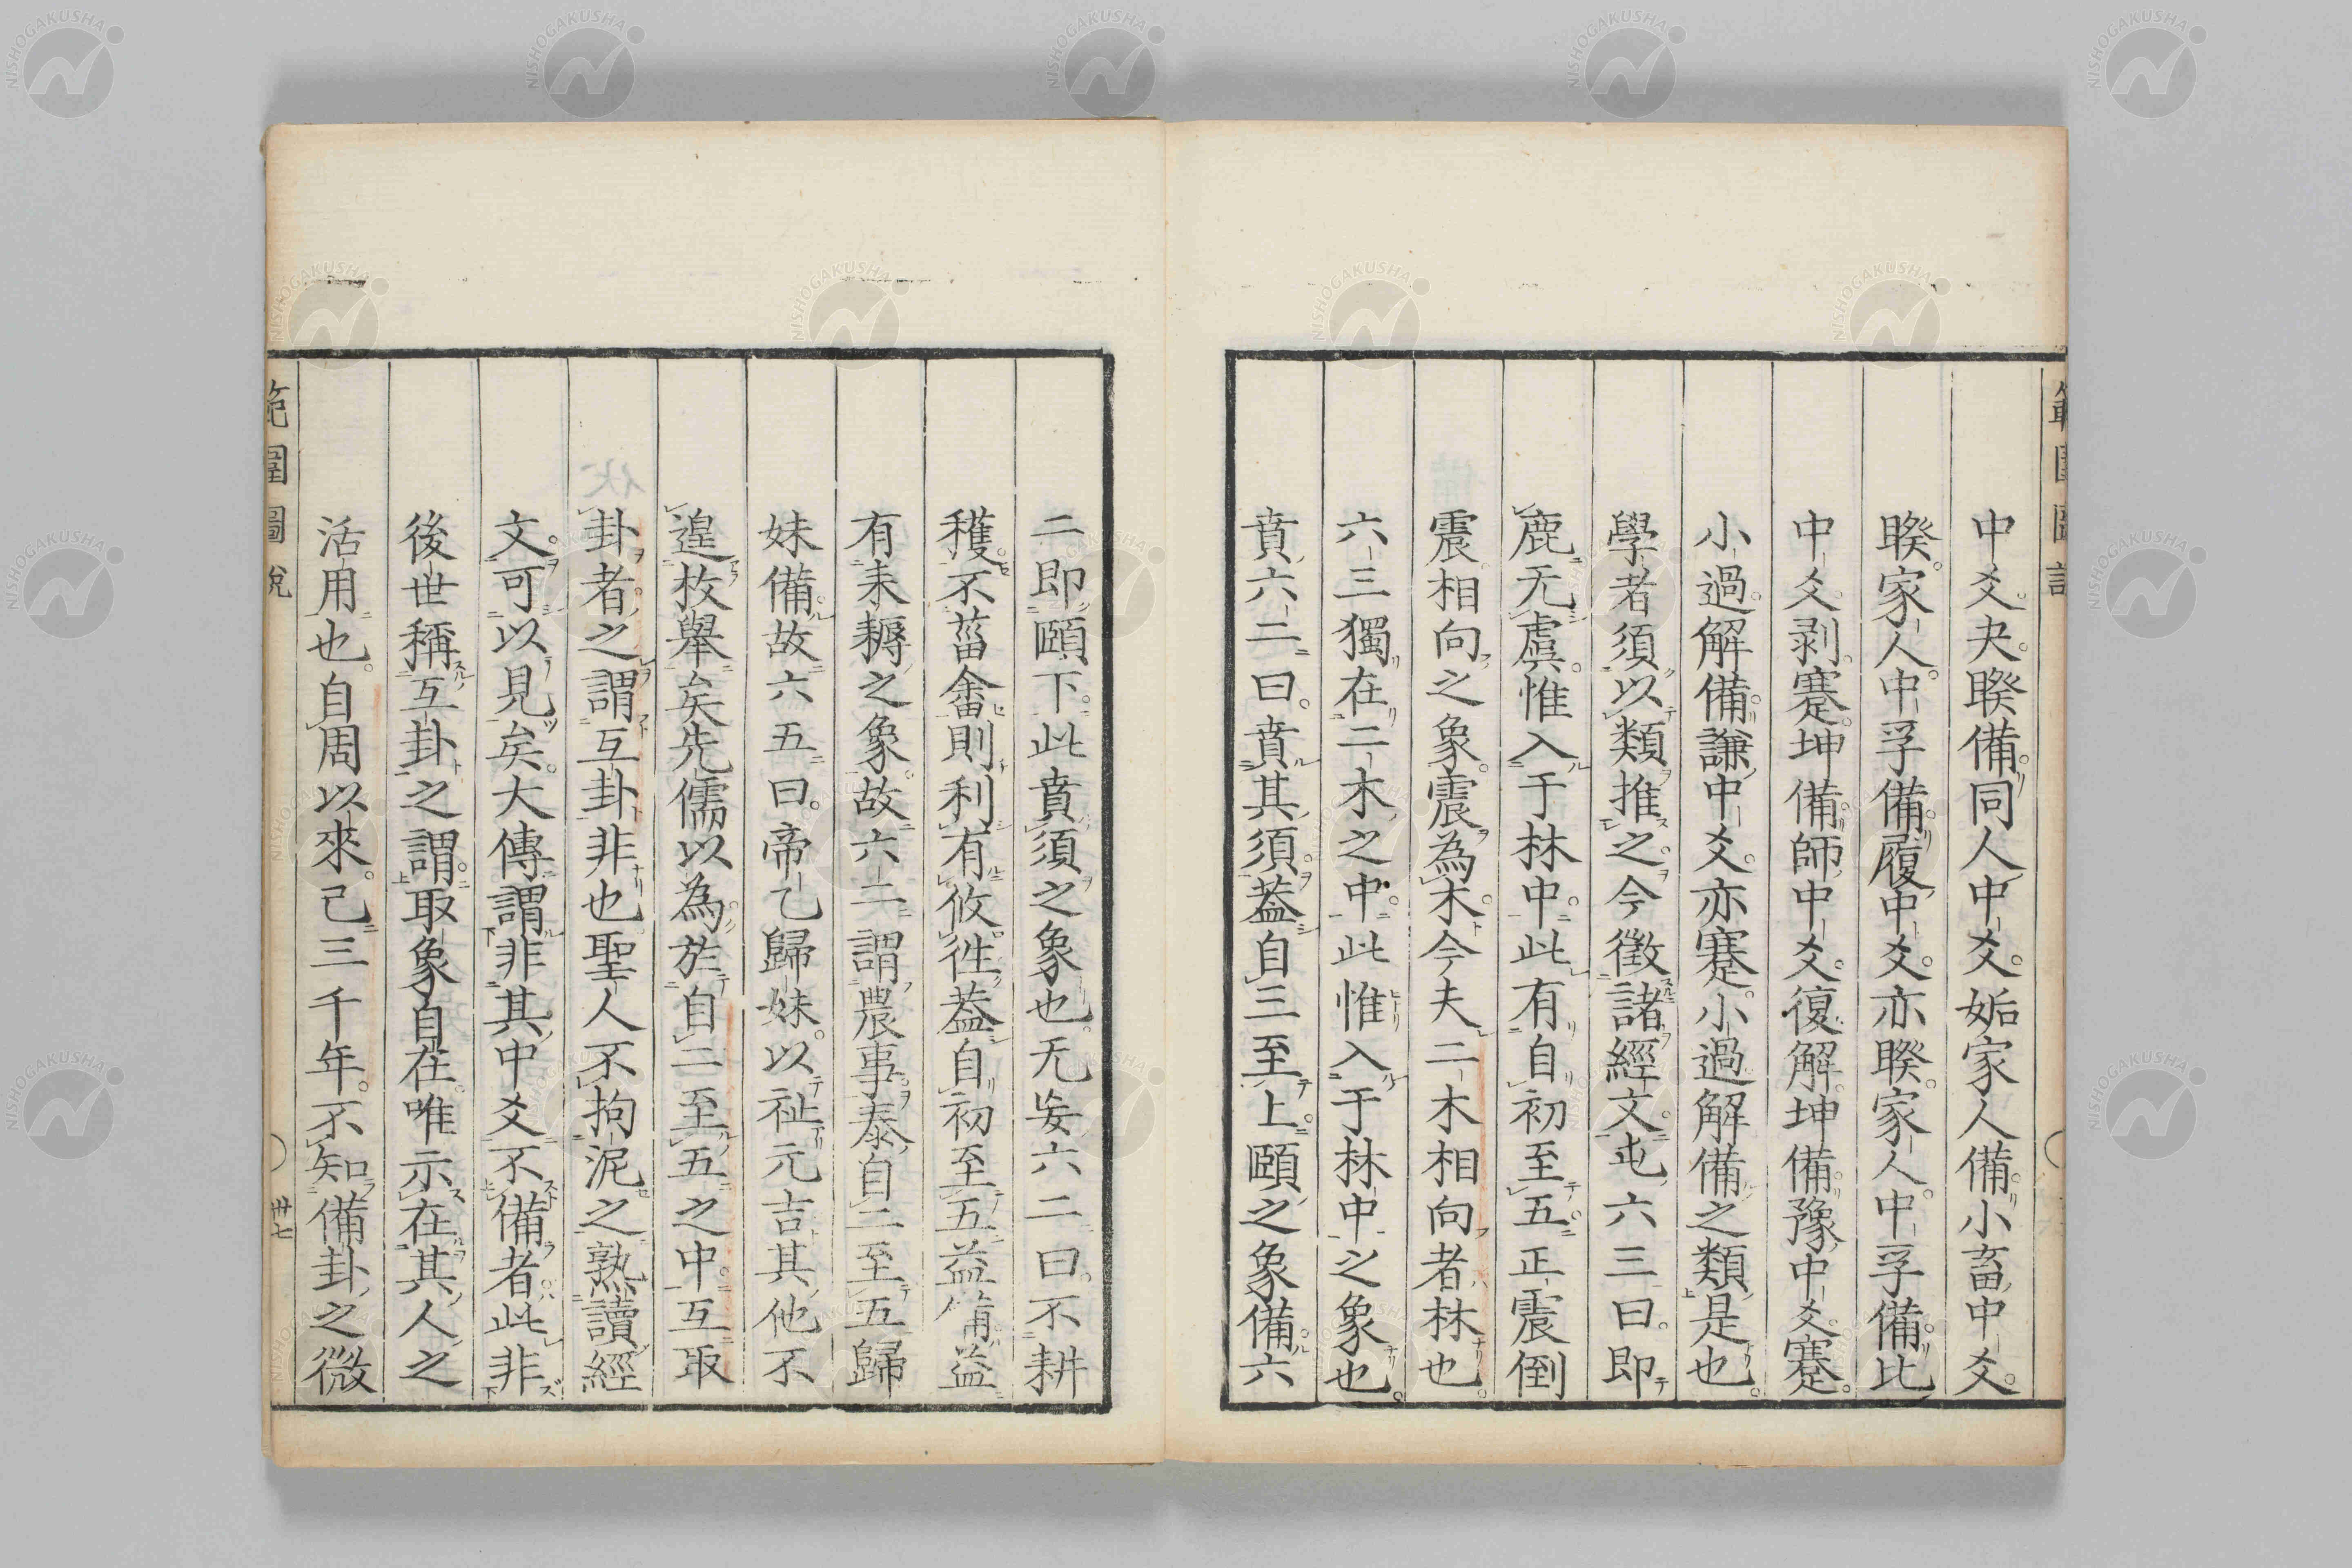 中爻夬睽備同人中爻姤家人備小畜中爻
睽家人中孚備履中爻亦睽家人中孚備比
中爻剥蹇坤備師中爻復解坤備豫中爻蹇
小過解備謙中爻亦蹇小過解備之類是也
學者須以類推之今徵諸經文屯六三曰即
鹿无虞惟入于林中此有自初至五正震倒
震相向之象震為木今夫二木相向者林也
六三獨在二木之中此惟入于林中之象也
賁六二曰賁其須葢自三至上頤之象備六
二即頤下此賁須之象也无妄六二曰不耕
穫不菑畬則利有攸徃葢自初至五益備益
有耒耨之象故六二謂農事泰自二至五歸
妹備故六五曰帝乙歸妹以祉元吉其他不
遑枚舉矣先儒以為於自二至五之中互取
卦者之謂互卦非也聖人不拘泥之熟讀經
文可以見矣大傳謂非其中爻不備者此非
後世稱互卦之謂取象自在唯示在其人之
活用也自周以來已三千年不知備卦之微
範圍圖說
卅七
NISHOGAKUSHA